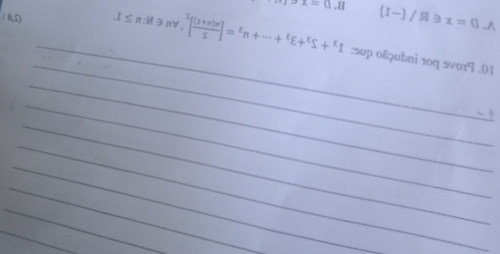 A. D = x ∈ ℝ / (−1)
B. D = x ∈
10. Prove por indução que: 1³ + 2³ + 3³ + ⋯ + n³ = [n(n+1)/2]², ∀n ∈ ℕ: n ≥ 1.
(2,0